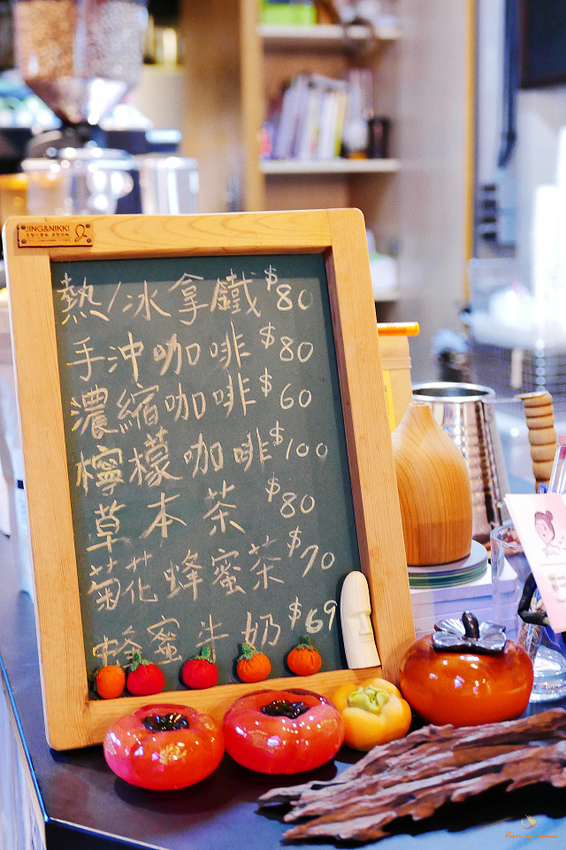 JING&NIKKI
熱/冰拿鐵$80
手沖咖啡$80
濃縮咖啡$60
檸檬咖啡$100
草本茶$80
菊花蜂蜜茶$70
蜂蜜牛奶$69